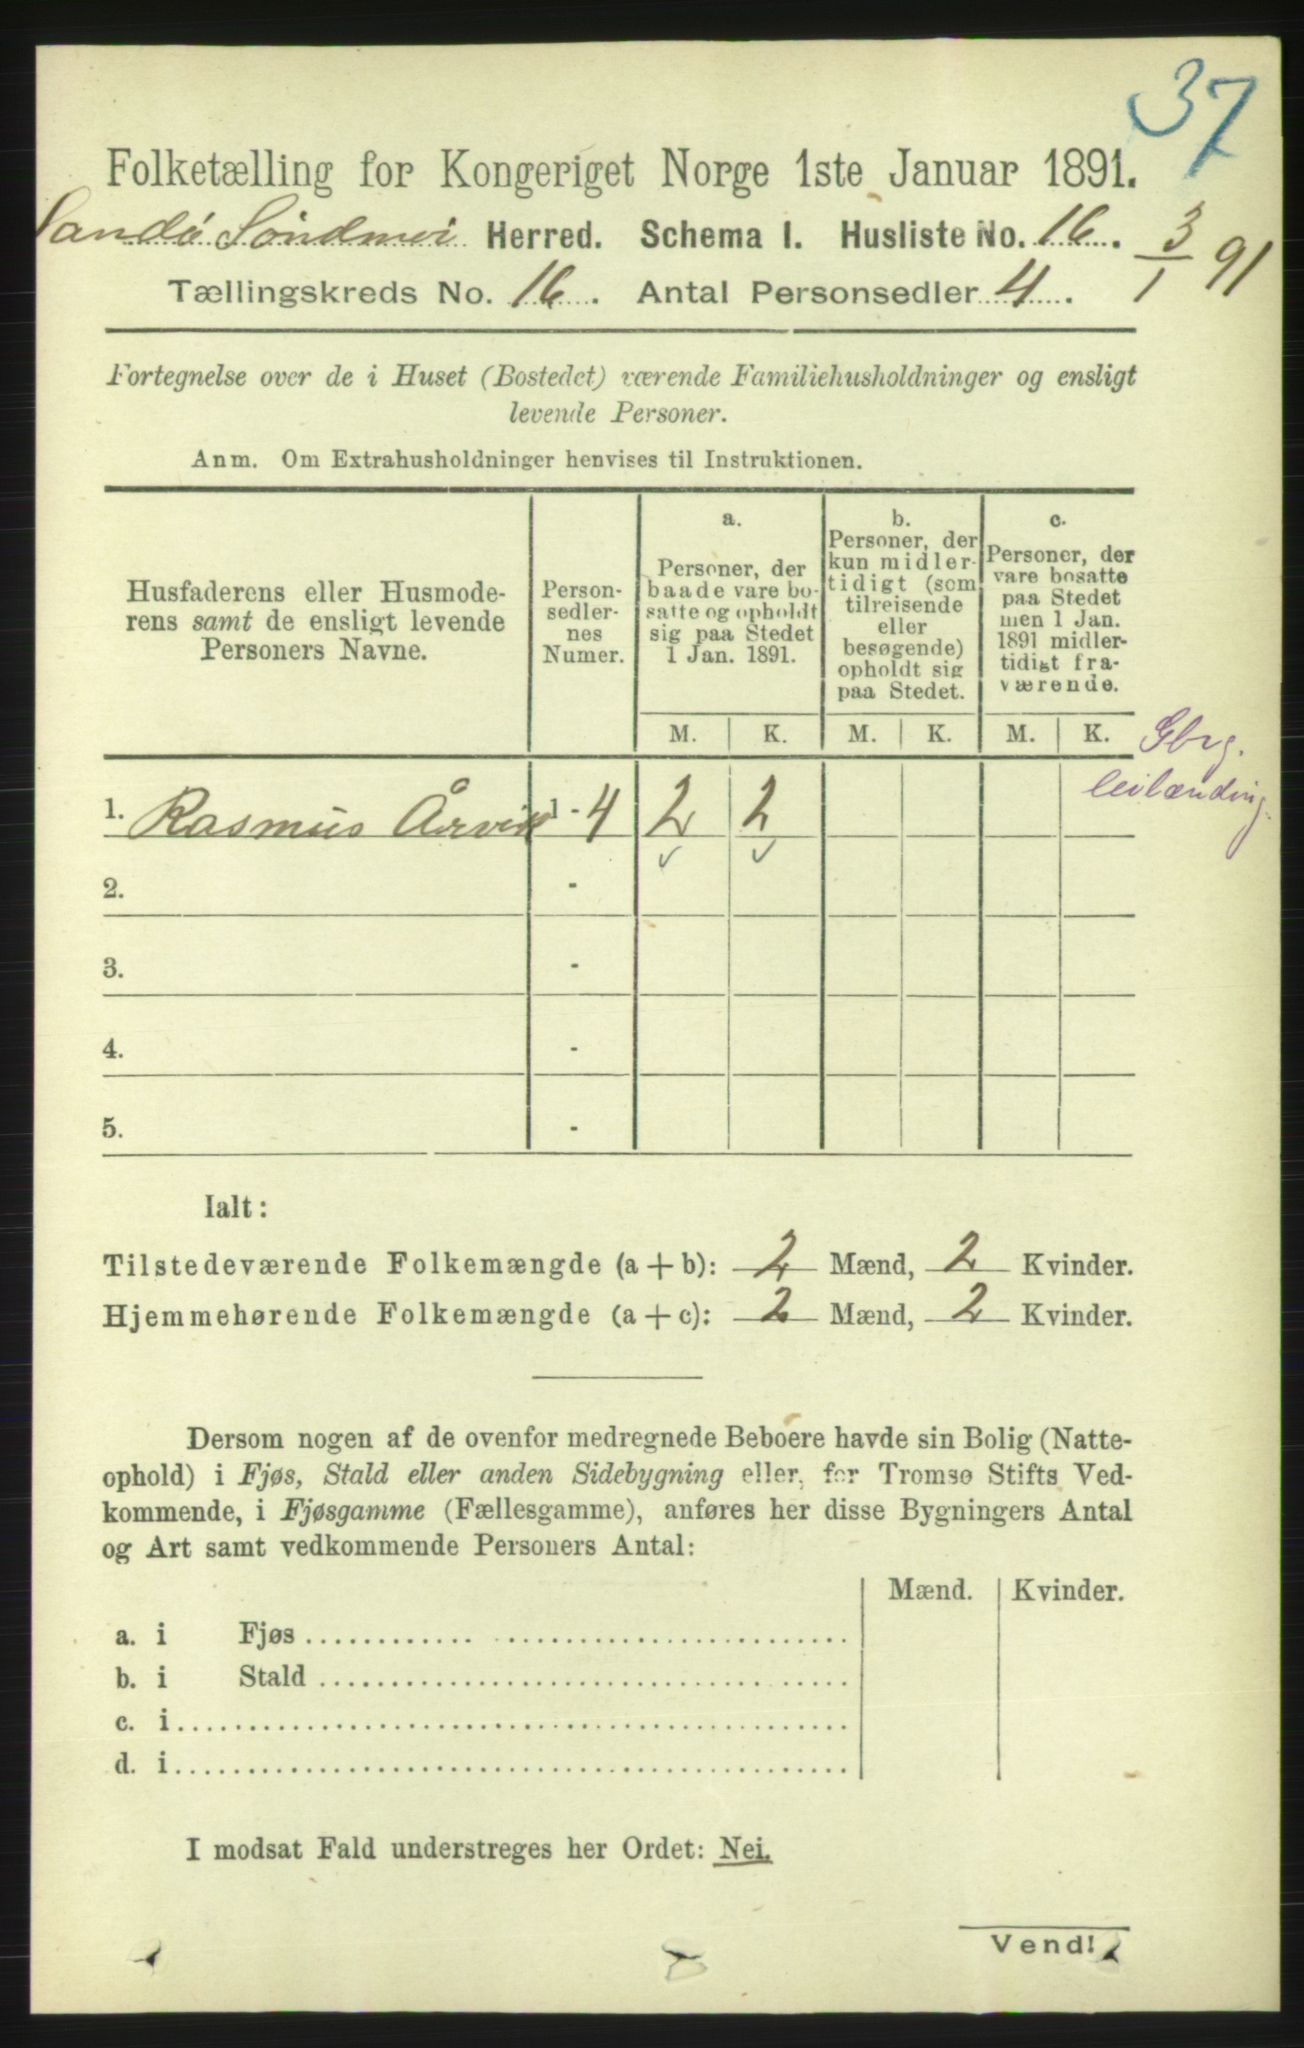 37
Folketælling for Kongeriget Norge 1ste Januar 1891.
Sandö Söndmör Herred. Schema I. Husliste No. 16.
3/1 91
Tællingskreds No. 16. Antal Personsedler 4.
Fortegnelse over de i Huset (Bostedet) værende Familiehusholdninger og ensligt
levende Personer.
Anm. Om Extrahusholdninger henvises til Instruktionen.
Husfaderens eller Husmode-
rens samt de ensligt levende
Personers Navne.
Person-
sedler-
nes
Numer.
a.
Personer, der
baade vare bo-
satte og opholdt
sig paa Stedet
1 Jan. 1891.
b.
Personer, der
kun midler-
tidigt (som
tilreisende
eller
besøgende)
opholdt sig
paa Stedet.
c.
Personer, der
vare bosatte
paa Stedet
men 1 Jan.
1891 midler-
tidigt fra-
værende.
M. K. M. K. M. K.
Gbrg.
leilænding.
1. Rasmus Årvik 1 - 4 2 2
2. -
3. -
4. -
5. -
Ialt:
Tilstedeværende Folkemængde (a + b): 2 Mænd, 2 Kvinder.
Hjemmehørende Folkemængde (a + c): 2 Mænd, 2 Kvinder.
Dersom nogen af de ovenfor medregnede Beboere havde sin Bolig (Natte-
ophold) i Fjøs, Stald eller anden Sidebygning eller, for Tromsø Stifts Ved-
kommende, i Fjøsgamme (Fællesgamme), anføres her disse Bygningers Antal
og Art samt vedkommende Personers Antal:
Mænd. Kvinder.
a. i Fjøs
b. i Stald
c. i
d. i
I modsat Fald understreges her Ordet: Nei.
Vend!